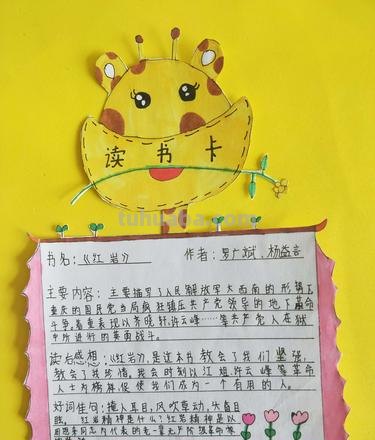 读书卡
tuhuabao.com
书名：《红岩》 作者：罗广斌、杨益言
主要内容：主要描写了人民解放军大西南的形势下
重庆的国民党当局疯狂镇压共产党领导的地下革命
斗争。着重表现以齐晓轩、许云峰……等共产党人在狱
中所进行的英勇战斗。
读后感想：《红岩》，是这本书教会了我们坚强，
教会了我珍惜。我会时刻以江姐，许云峰等革命
人士为榜样，促使我们成为一个有用的人。
好词佳句：掩人耳目，风吹草动，大盲目
胆。红岩精神是什么？红岩精神是以